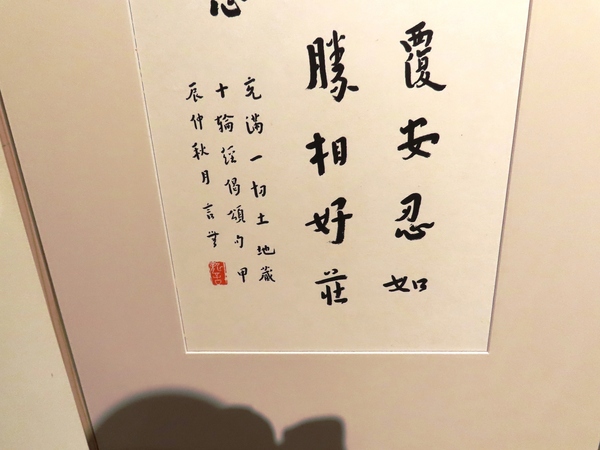 覆安忍如
勝相好莊
充滿一切土地藏
十輪經偈頌句甲
辰仲秋月言